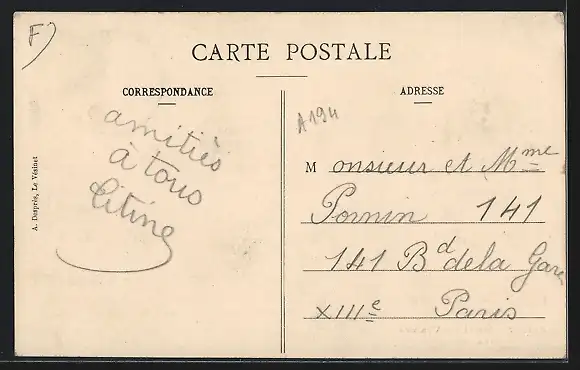 F
CARTE POSTALE
CORRESPONDANCE
ADRESSE
A194
amitiès
à tous
Titine
A. Desprès, Le Vésinet
Monsieur et Mme
Pornin 141
141 Bd de la Gare
XIIIe Paris